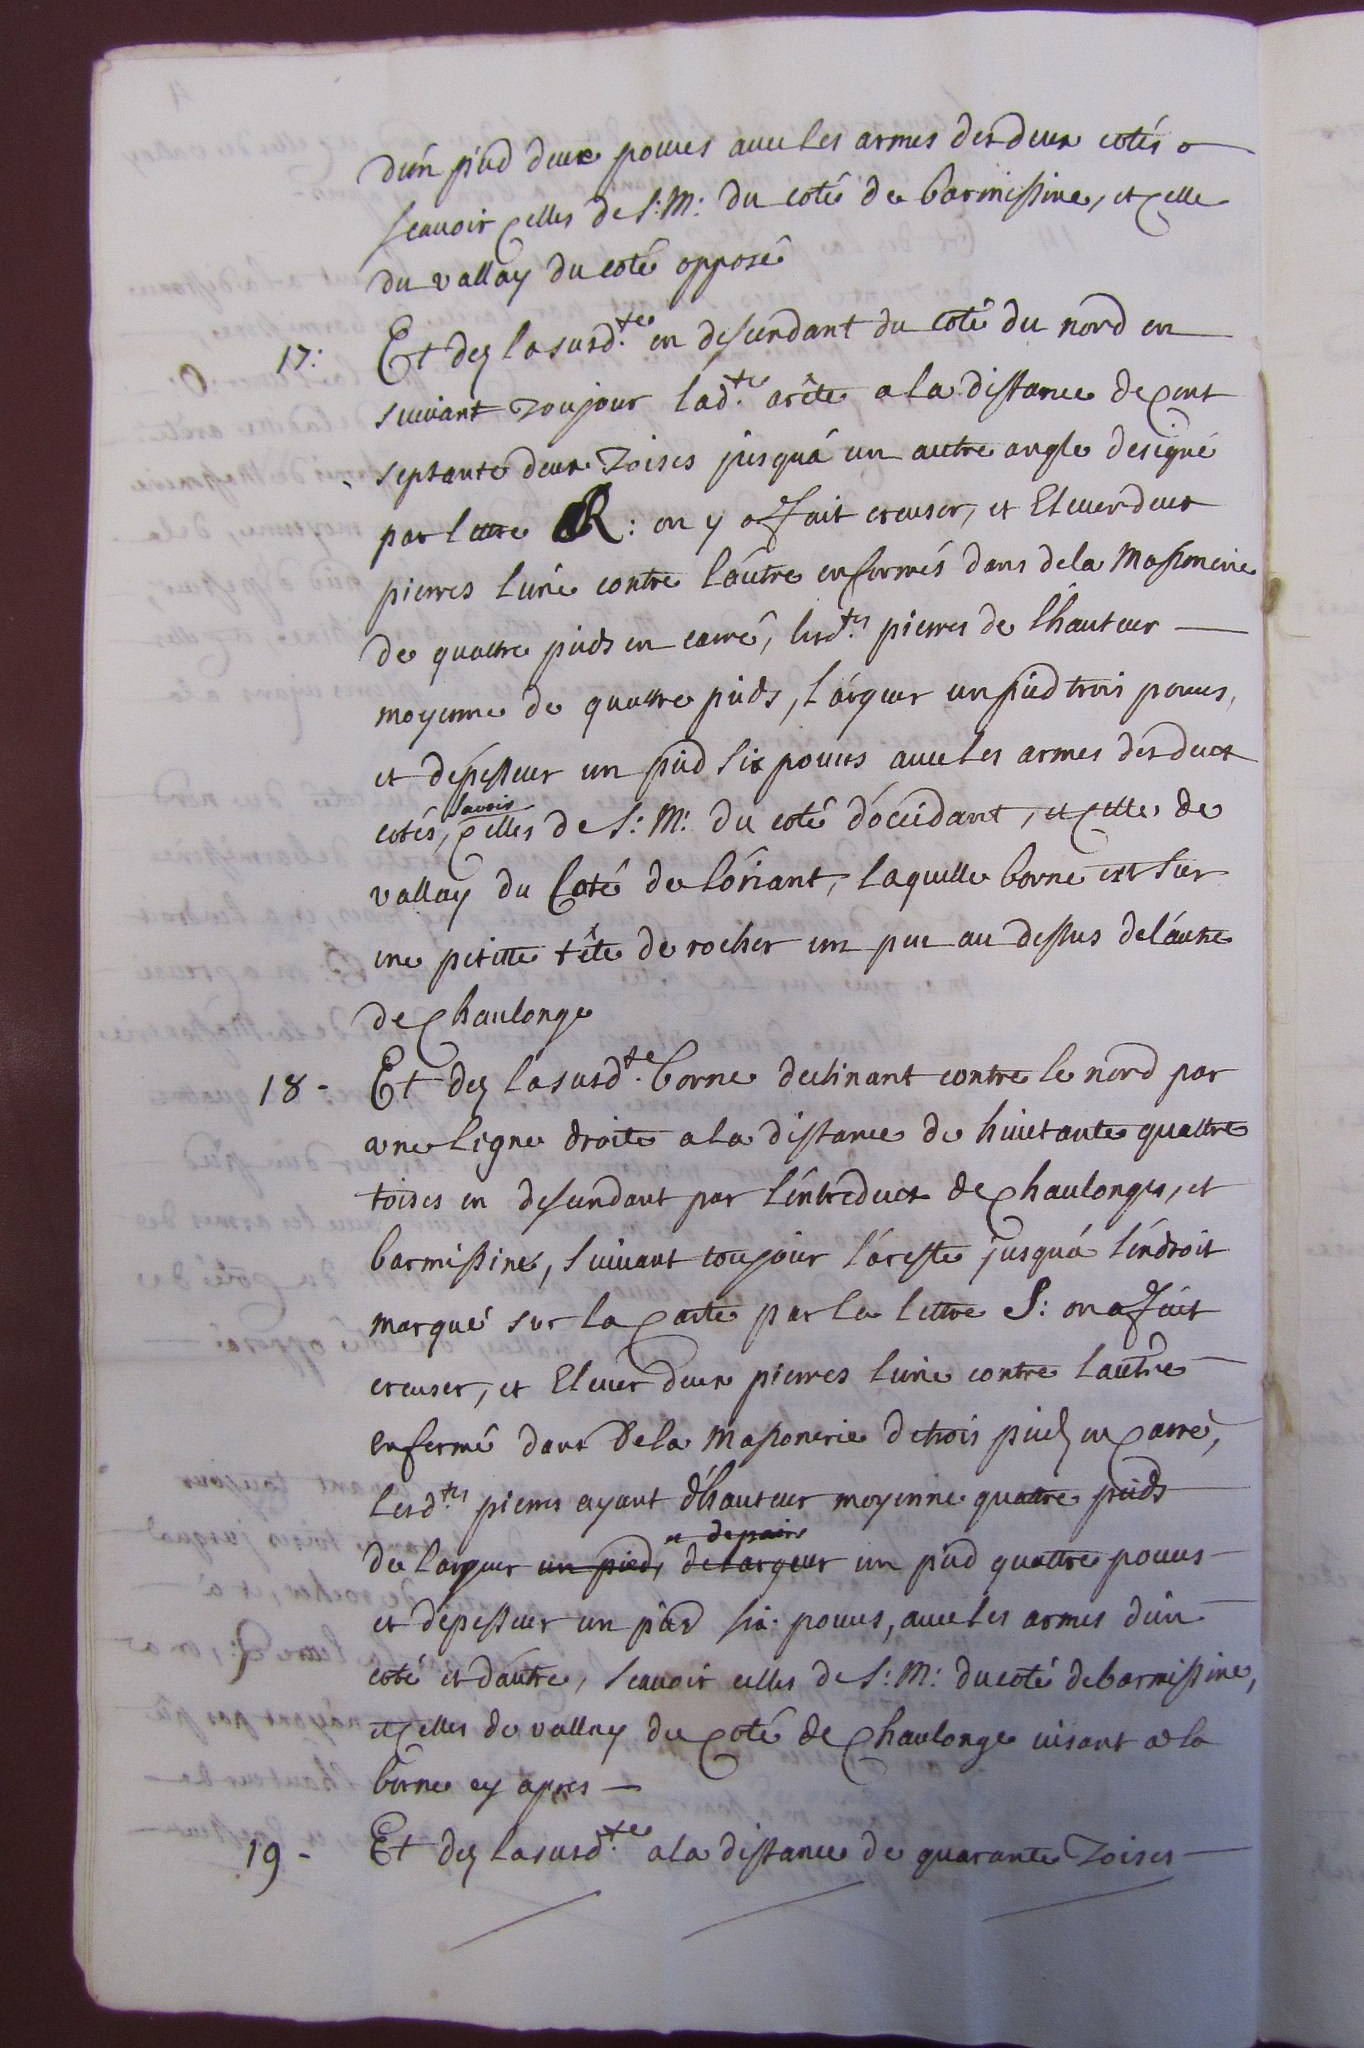 d'un pied deux pouces avec les armes des deux cotés
scavoir celles de S: M: du coté de barmissine, et celle
du vallay du coté opposé
17: Et dez la susd.te en descendant du coté du nord en
suivant toujour lad.te arête a la distance de cent
septante deux toises jusqu'á un autre angle designé
par lettre R: on y a fait creuser, et Elever deux
pierres l'une contre l'autre enfermés dans de la Massonerie
de quattre pieds en carré, lesd.tes pierres de l'hauteur
moyenne de quattre pieds, l'argeur un pied trois pouces,
et d'epesseur un pied six pouces avec les armes des deux
cotés, savoir celles de S: M: du coté d'occidant, et celles de
vallay du Coté de l'oriant, laquelle borne est sur
une petitte tête de rocher un peu au dessus de l'autre
de Chaulonge
18 - Et dez la susd.te borne declinant contre le nord par
une ligne droite a la distance de huictante quattre
toises en descendant par l'entredeux de Chaulonges, et
barmissine, suivant toujour l'areste jusqu'á l'endroit
marqué sur la Carte par la lettre S: on a fait
creuser, et Elever deux pierres l'une contre l'autre
enfermé dans de la Massonerie de trois pieds en Carré,
lesd.tes pierres ayant d'hauteur moyenne quattre pieds
de largeur un pied, de largeur un pied quattre pouces
et d'epesseur un pied six pouces, avec les armes d'un
coté et d'autre, scavoir celles de S: M: du coté de barmissine,
et celles de vallay du Coté de Chaulonge visant a la
borne cy apres
19 - Et dez la susd.te a la distance de quarante toises